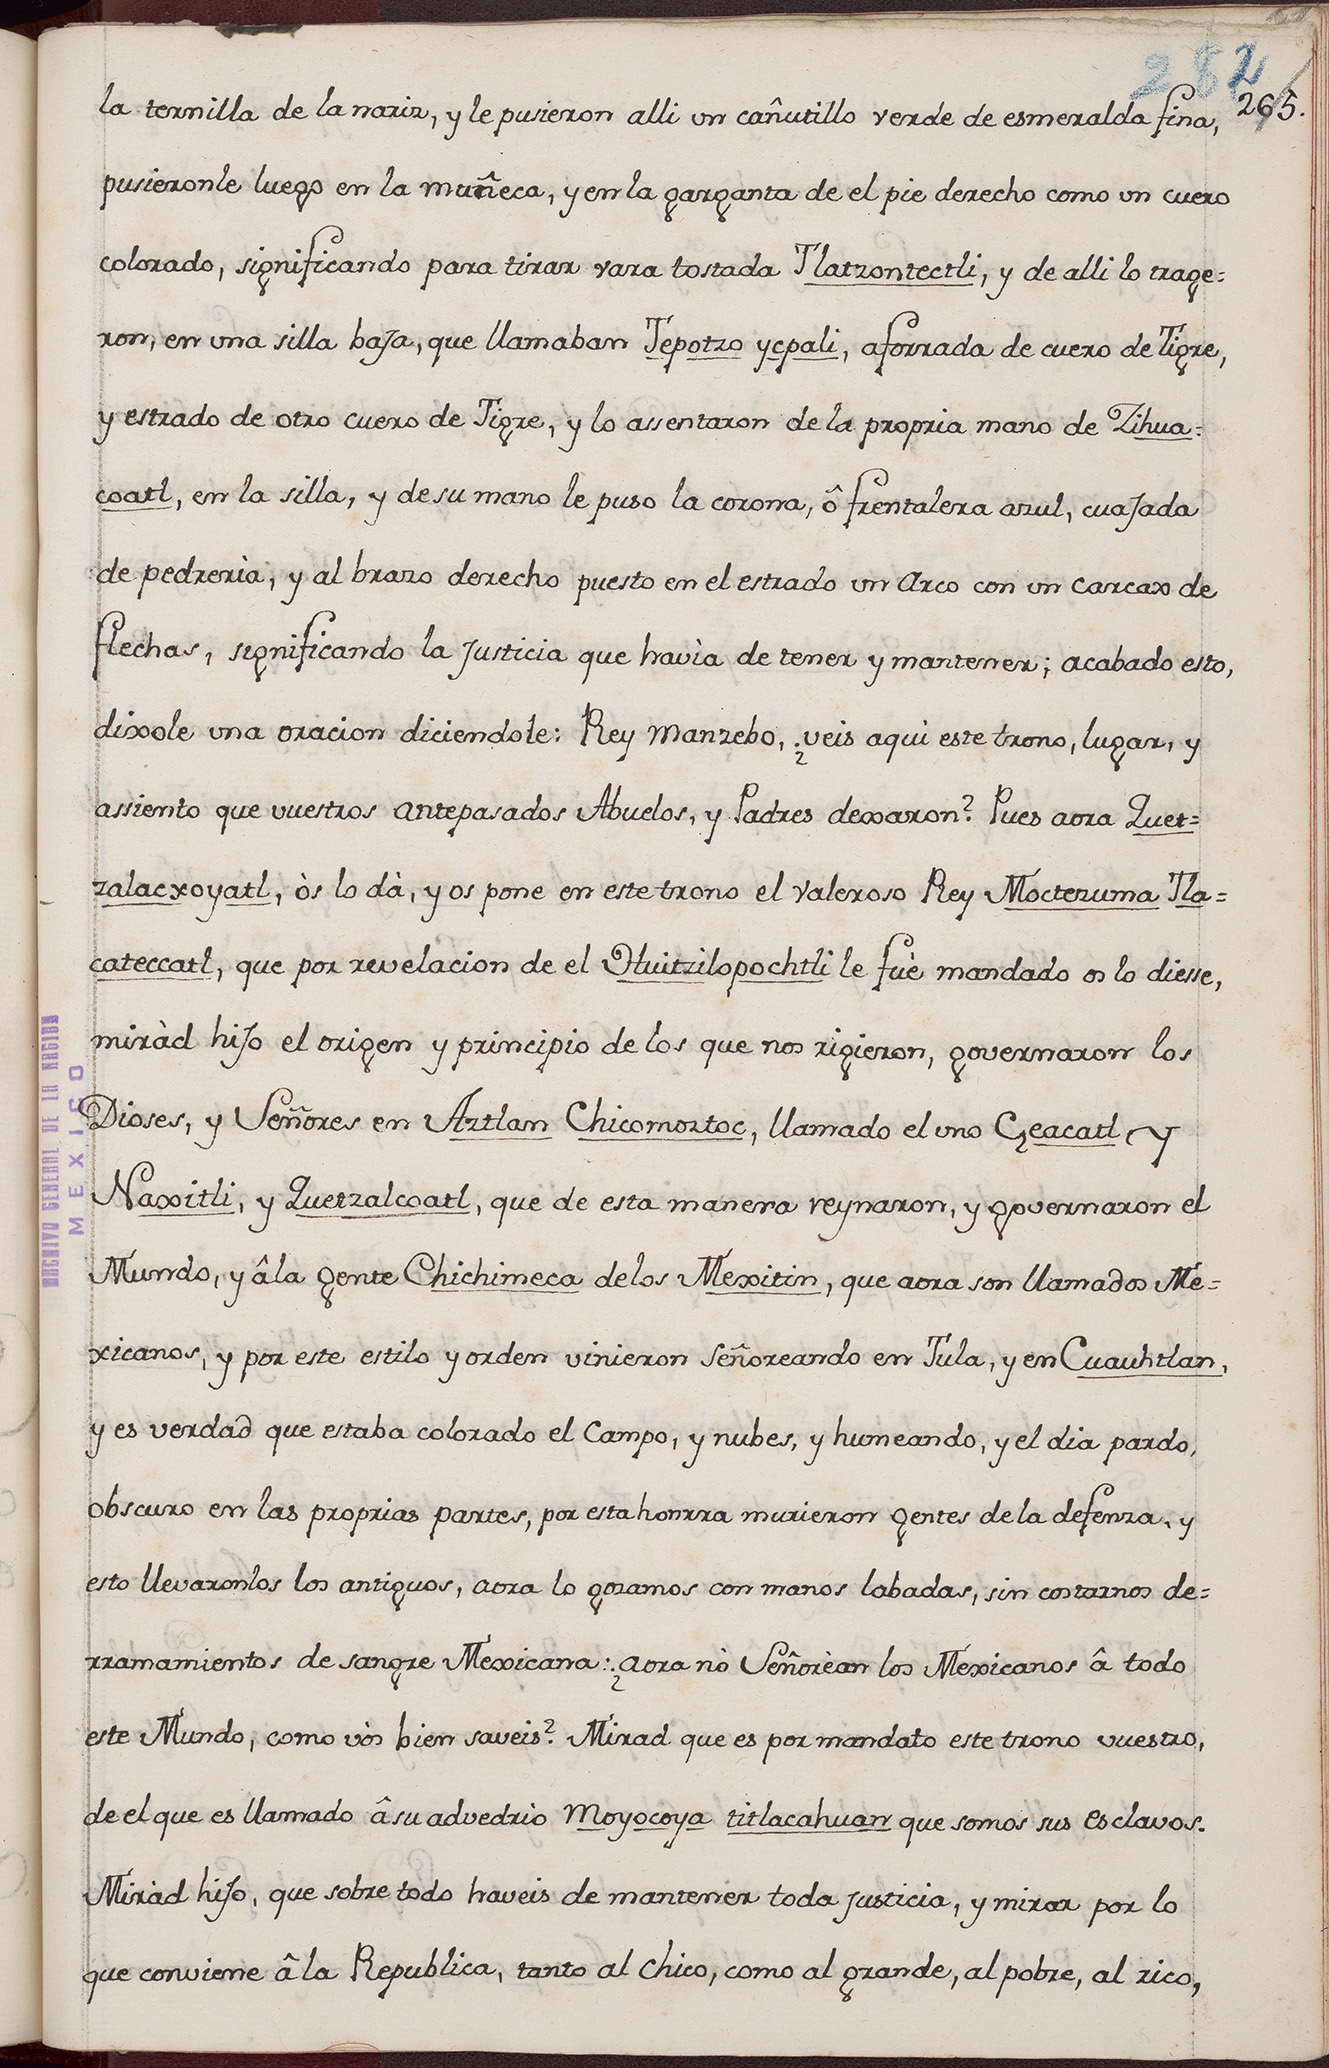 282
265.
la ternilla de la nariz, y le pusieron alli un cañutillo verde de esmeralda fina,
pusieronle luego en la muñeca, y en la garganta de el pie derecho como un cuero
colorado, significando para tirar vara tostada Tlatzontectli, y de alli lo trage=
ron, en una silla baja, que llamaban Tepotzo ycpali, aforrada de cuero de Tigre,
y estrado de otro cuero de Tigre, y lo assentaron de la propria mano de Zihua=
coatl, en la silla, y de su mano le puso la corona, ô frentalera azul, cuajada
de pedrerìa, y al brazo derecho puesto en el estrado un Arco con un carcax de
flechas, significando la Justicia que havìa de tener y mantener; acabado esto,
dixole una oracion diciendole: Rey Manzebo, ¿veis aqui este trono, lugar, y
assiento que vuestros antepasados Abuelos, y Padres dexaron? Pues aora Quet=
zalacxoyatl, òs lo dà, y os pone en este trono el valeroso Rey Moctezuma Tla=
cateccatl, que por revelacion de el Huitzilopochtli le fuè mandado os lo diesse,
miràd hijo el origen y principio de los que nos rigieron, governaron los
Dioses, y Señores en Aztlan Chicomoztoc, llamado el uno Çeacatl y
Naxitli, y Quetzalcoatl, que de esta manera reynaron, y governaron el
Mundo, y â la gente Chichimeca de los Mexitin, que aora son llamados Me=
xicanos, y por este estilo y orden vinieron señoreando en Tula, y en Cuauhtlan,
y es verdad que estaba colorado el Campo, y nubes, y humeando, y el dia pardo,
obscuro en las proprias partes, por esta honrra murieron gentes de la defenza, y
esto llevaronlos los antiguos, aora lo gozamos con manos labadas, sin costarnos de=
rramamientos de sangre Mexicana: ¿aora nò Señorèan los Mexicanos â todo
este Mundo, como vòs bien saveis? Mirad que es por mandato este trono vuestro,
de el que es llamado â su advedrio Moyocoya titlacahuan que somos sus esclavos.
Miràd hijo, que sobre todo haveis de mantener toda justicia, y mirar por lo
que conviene â la Republica, tanto al chico, como al grande, al pobre, al rico,
ARCHIVO GENERAL DE LA NACION
MEXICO